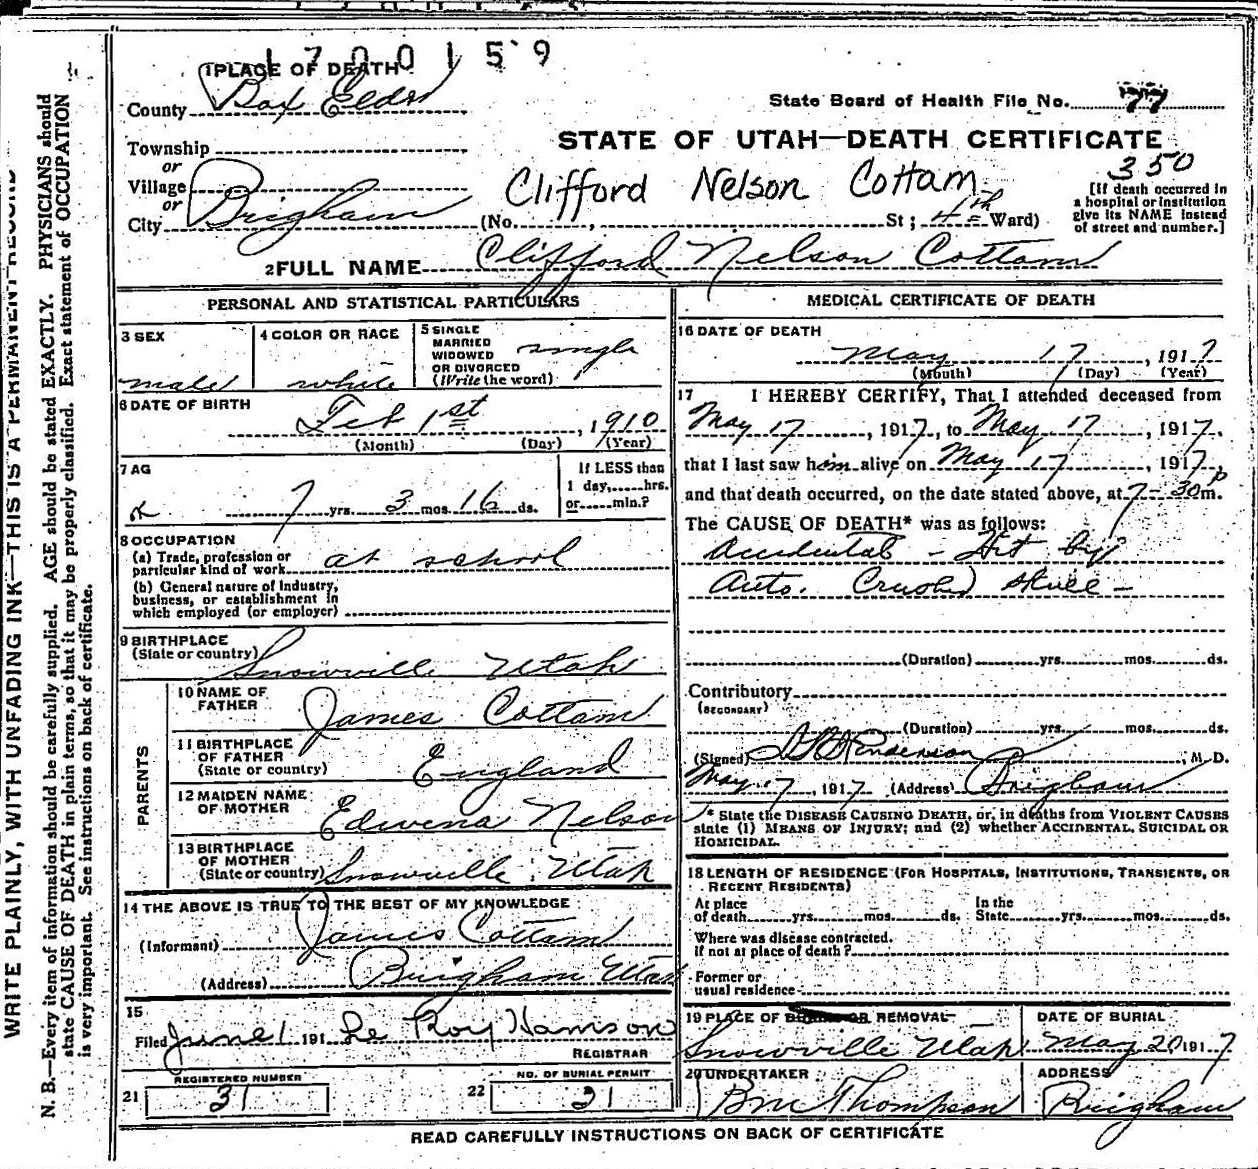 1700159
1 PLACE OF DEATH
County Box Elder
State Board of Health File No. 77
Township
or
Village
or
City Brigham
STATE OF UTAH—DEATH CERTIFICATE
350
Clifford Nelson Cottam
(No. , St; 4th Ward)
[If death occurred in
a hospital or institution
give its NAME instead
of street and number.]
2 FULL NAME Clifford Nelson Cottam
PERSONAL AND STATISTICAL PARTICULARS
3 SEX
male
4 COLOR OR RACE
white
5 SINGLE
MARRIED
WIDOWED
OR DIVORCED
(Write the word)
single
6 DATE OF BIRTH
Feb 1st, 1910
(Month) (Day) (Year)
7 AG
7 yrs. 3 mos. 16 ds.
If LESS than
1 day,.....hrs.
or.....min.?
8 OCCUPATION
(a) Trade, profession or
particular kind of work at school
(b) General nature of industry,
business, or establishment in
which employed (or employer)
9 BIRTHPLACE
(State or country) Snowville Utah
PARENTS
10 NAME OF
FATHER James Cottam
11 BIRTHPLACE
OF FATHER
(State or country) England
12 MAIDEN NAME
OF MOTHER Edwena Nelson
13 BIRTHPLACE
OF MOTHER
(State or country) Snowville Utah
14 THE ABOVE IS TRUE TO THE BEST OF MY KNOWLEDGE
(Informant) James Cottam
(Address) Brigham Utah
15
Filed June 1 191 Le Roy Hamson
REGISTRAR
REGISTERED NUMBER
21 31
NO. OF BURIAL PERMIT
22 21
MEDICAL CERTIFICATE OF DEATH
16 DATE OF DEATH
May 17, 1917
(Month) (Day) (Year)
17 I HEREBY CERTIFY, That I attended deceased from
May 17, 1917, to May 17, 1917,
that I last saw him alive on May 17, 1917
and that death occurred, on the date stated above, at 7-30 p m.
The CAUSE OF DEATH* was as follows:
Accidental - Hit by
Auto. Crushed skull -
(Duration) yrs. mos. ds.
Contributory
(SECONDARY)
(Duration) yrs. mos. ds.
(Signed) , M. D.
May 17, 1917 (Address) Brigham
* State the DISEASE CAUSING DEATH, or, in deaths from VIOLENT CAUSES
state (1) MEANS OF INJURY; and (2) whether ACCIDENTAL, SUICIDAL OR
HOMICIDAL.
18 LENGTH OF RESIDENCE (FOR HOSPITALS, INSTITUTIONS, TRANSIENTS, OR
RECENT RESIDENTS)
At place
of death yrs. mos. ds.
In the
State yrs. mos. ds.
Where was disease contracted.
if not at place of death?
Former or
usual residence
19 PLACE OF BURIAL OR REMOVAL
Snowville Utah
DATE OF BURIAL
May 20 1917
20 UNDERTAKER
Bm Thompson
ADDRESS
Brigham
READ CAREFULLY INSTRUCTIONS ON BACK OF CERTIFICATE
WRITE PLAINLY, WITH UNFADING INK—THIS IS A PERMANENT RECORD
N. B.—Every item of information should be carefully supplied. AGE should be stated EXACTLY. PHYSICIANS should
state CAUSE OF DEATH in plain terms, so that it may be properly classified. Exact statement of OCCUPATION
is very important. See instructions on back of certificate.